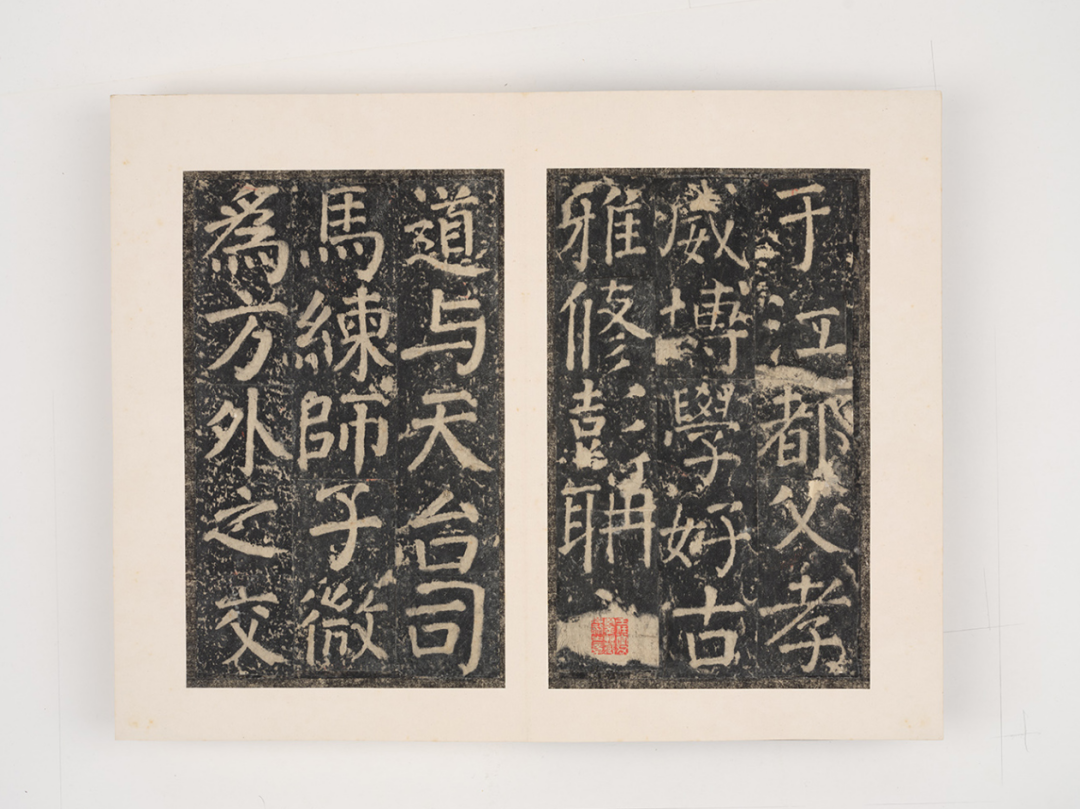 于江都父孝
威博學好古
雅修彭聃
道与天台司
馬練師子微
爲方外之交